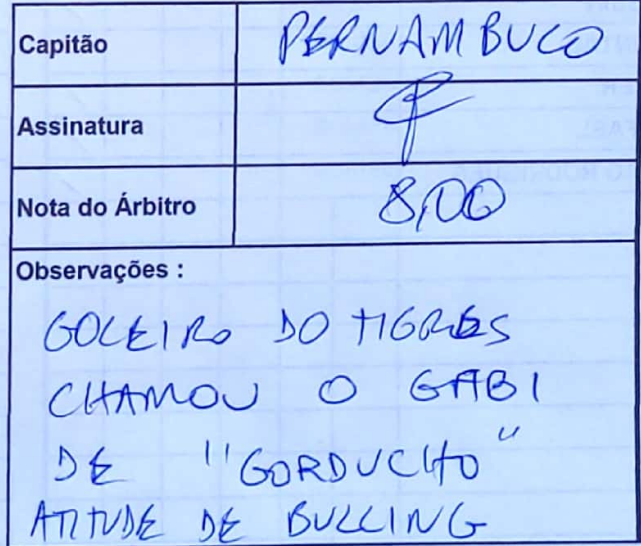 Capitão PERNAMBUCO
Assinatura
Nota do Árbitro 8,00
Observações :
GOLEIRO DO TIGRES
CHAMOU O GABI
DE "GORDUCHO"
ATITUDE DE BULLING